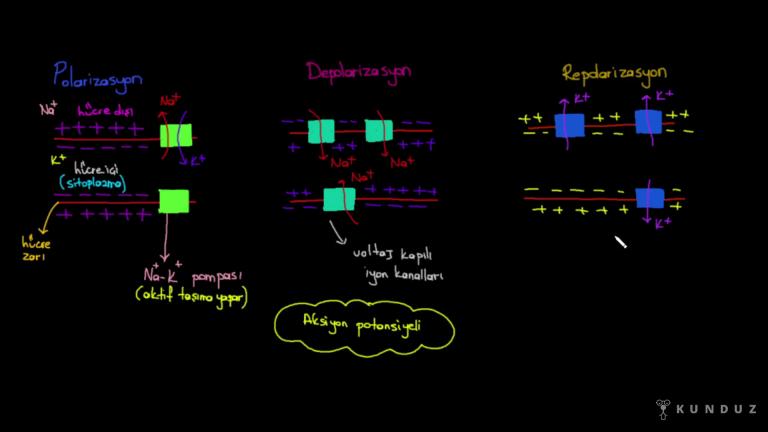 Polarizasyon
Na+
hücre dışı
+ + + + + +
Na+
K+
K+
hücre içi
(sitoplazma)
+ + + + +
hücre zarı
Na+-K+ pompası
(aktif taşıma yapar)
Depolarizasyon
+ ++ +++
Na+
Na+
Na+
++ ++++
voltaj kapılı
iyon kanalları
Aksiyon potansiyeli
Repolarizasyon
K+
K+
++ ++ ++
+ + + + + +
K+
KUNDUZ